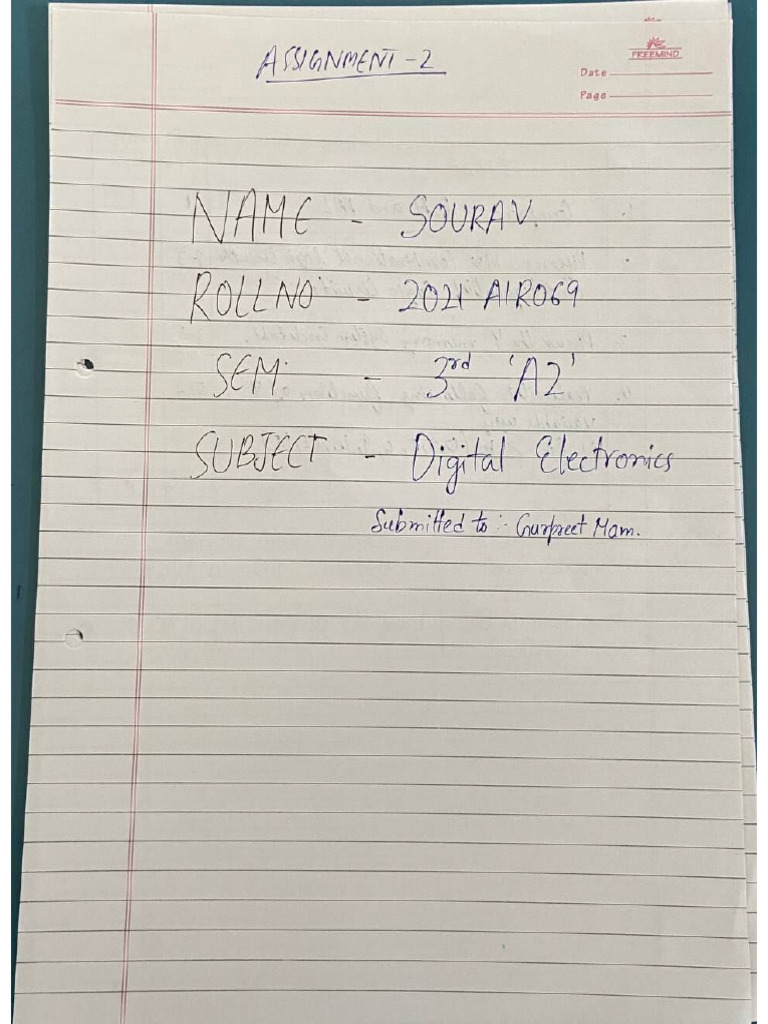 ASSIGNMENT - 2
FREEMIND
Date
Page
NAME - SOURAV
ROLLNO - 2021 A1R069
SEM. - 3rd 'A2'
SUBJECT - Digital Electronics
Submitted to :- Gurpreet Mam.